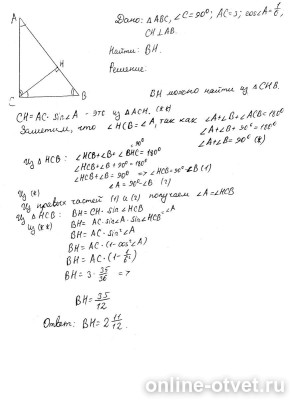 Дано: △ABC, ∠C=90°; AC=3; cos∠A=1/6,
CH⊥AB.
Найти: BH.
Решение:
A
H
C
B
BH можно найти из △CHB.
CH=AC·sin∠A - это из △ACH. (**)
Заметим, что ∠HCB=∠A, так как ∠A+∠B+∠ACB=180°
∠A+∠B+90°=180°
∠A+∠B=90° (*)
Из △HCB: ∠HCB+∠B+∠BHC=180°
=90°
∠HCB+∠B+90°=180°
∠HCB+∠B=90° => ∠HCB=90°-∠B (1)
Из (*) ∠A=90°-∠B (2)
Из правых частей (1) и (2) получаем ∠A=∠HCB
Из △HCB: BH=CH·sin∠HCB
Из (**) BH=AC·sin∠A·sin∠HCB =∠A
BH=AC·sin²∠A
BH=AC·(1-cos²∠A)
BH=AC·(1-1/6²)
BH=3·35/36 =>
BH=35/12
Ответ: BH=2 11/12.
online-otvet.ru